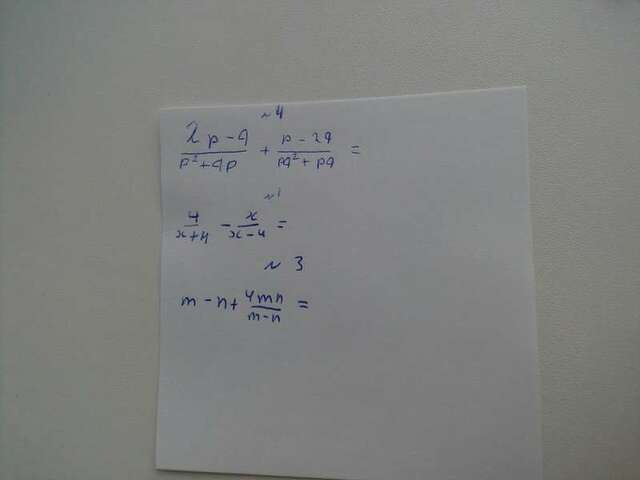 №4
2p-q/p²+qp + p-2q/pq²+pq =
№1
4/x+4 - x/x-4 =
№3
m-n+4mn/m-n =